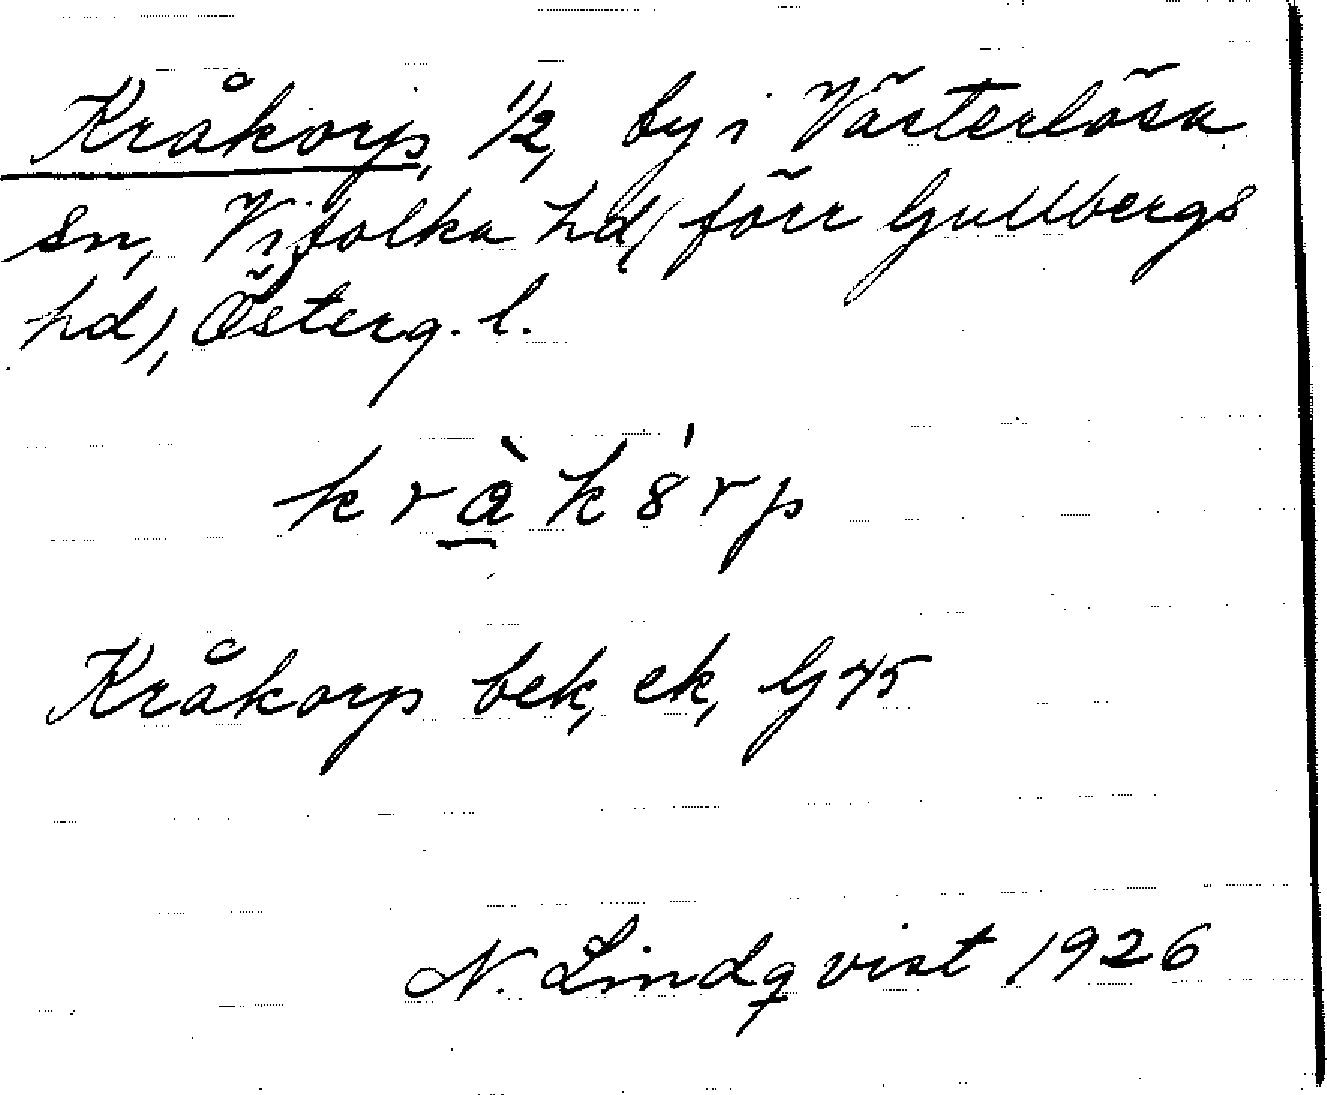 Kråkorp, 1/2, by i Västerlösa
sn, Vifolka hd (förr Gullbergs
hd), Österg. l.
kràk8́rp
Kråkorp bek, ek, G 45
N. Lindqvist 1926